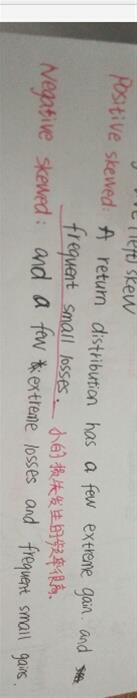 left skew
Positive skewed: A return distribution has a few extreme gain. and
frequent small losses. 小的损失发生的频率很高.
Negative skewed: and a few extreme losses and frequent small gains.